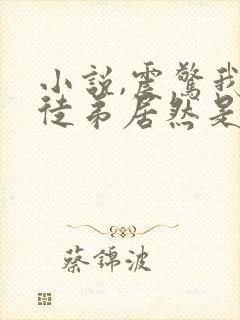 小說,震驚我
徒弟居然是
蔡錦波